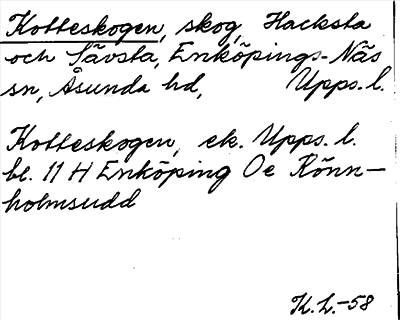 Kotteskogen, skog, Hacksta
och Sävsta, Enköpings-Näs
sn, Åsunda hd, Upps. l.
Kotteskogen, ek. Upps. l.
bl. 11 H Enköping Oe Rönn-
holmsudd
K.L.-58